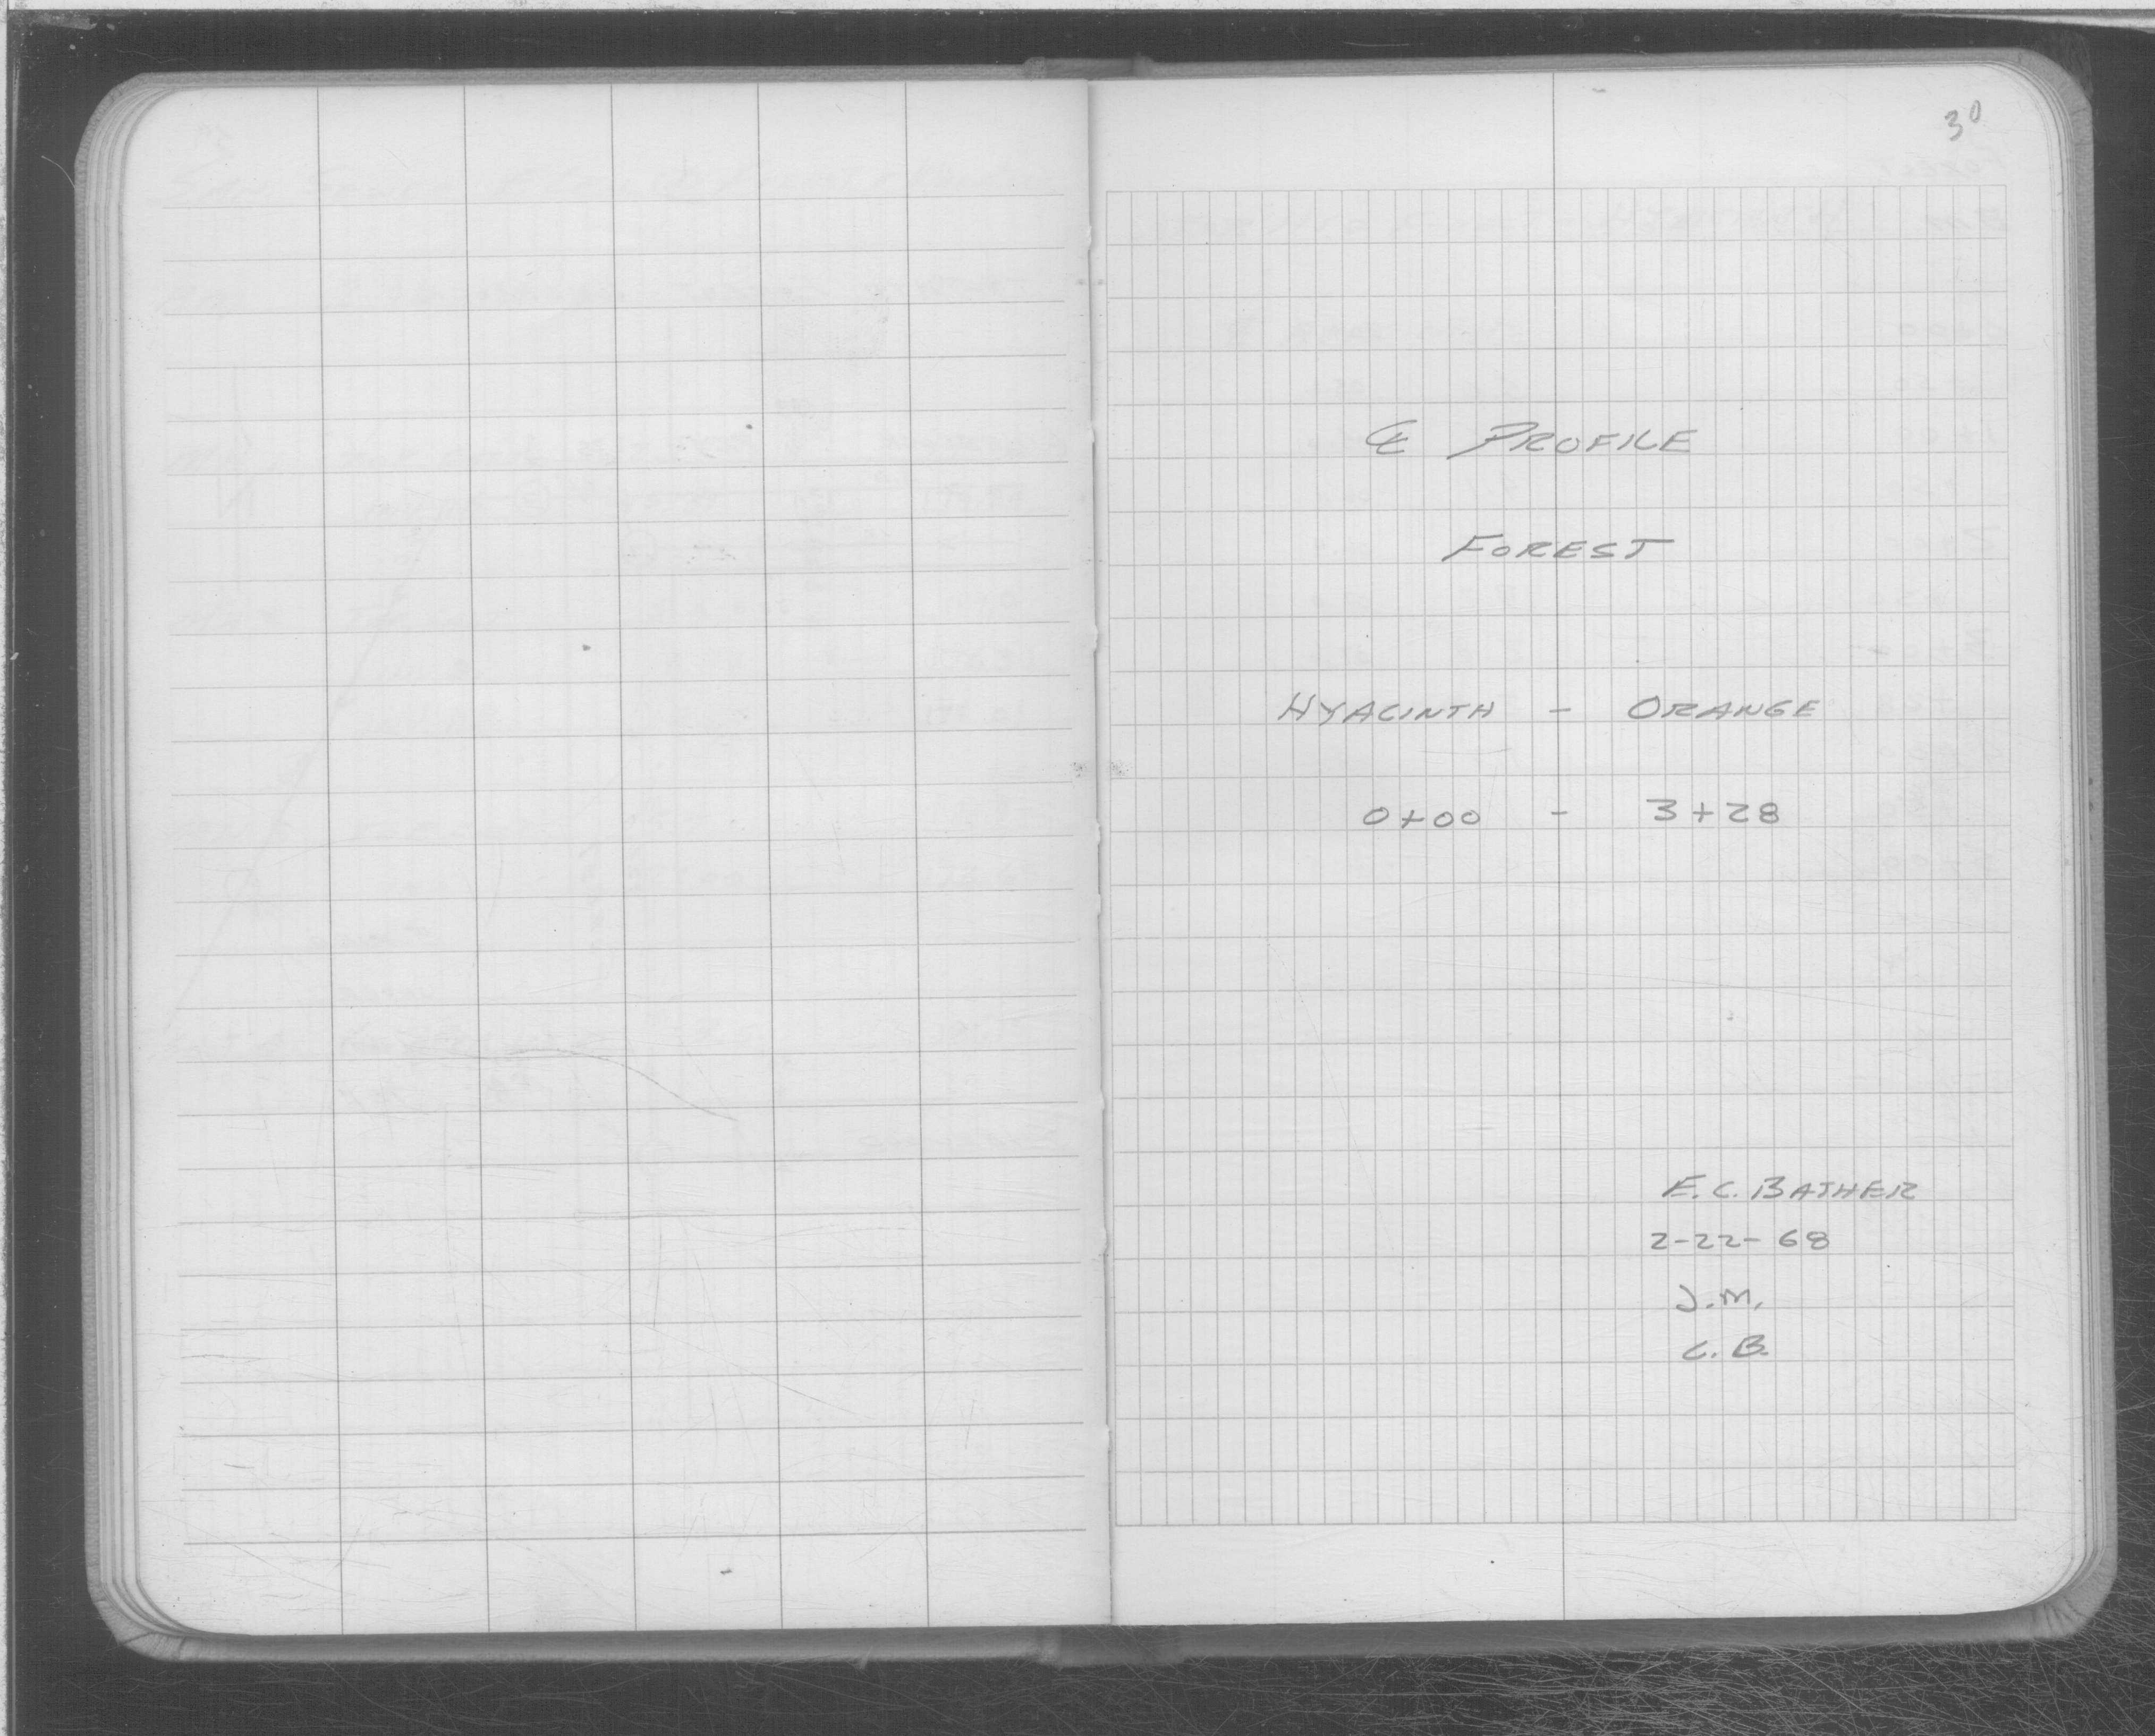 30
℄ PROFILE
FOREST
HYACINTH - ORANGE
0+00 - 3+28
E.C. BATHER
2-22-68
J.M.
C.B.